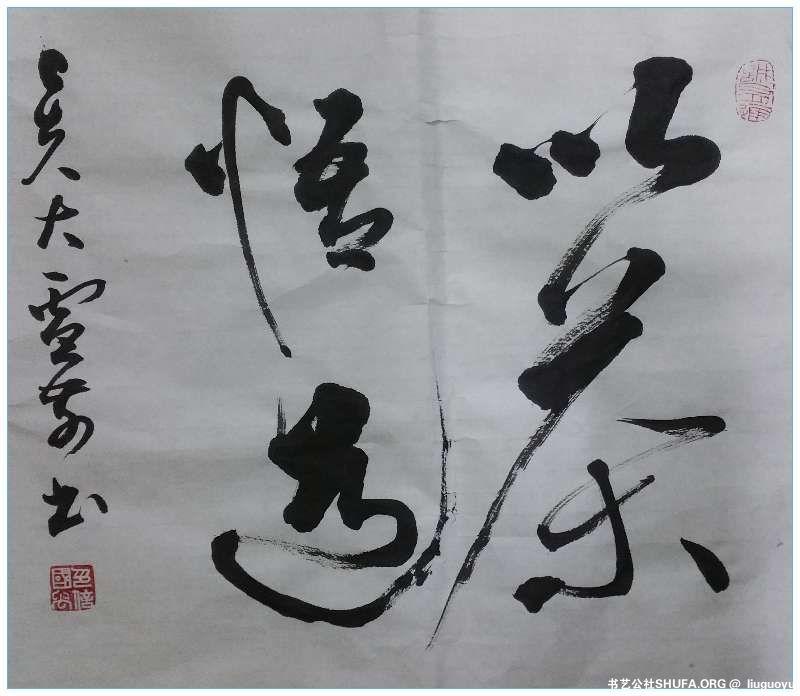 以茶
悟道
大雪前书
书艺公社SHUFA.ORG @ liuguoyu